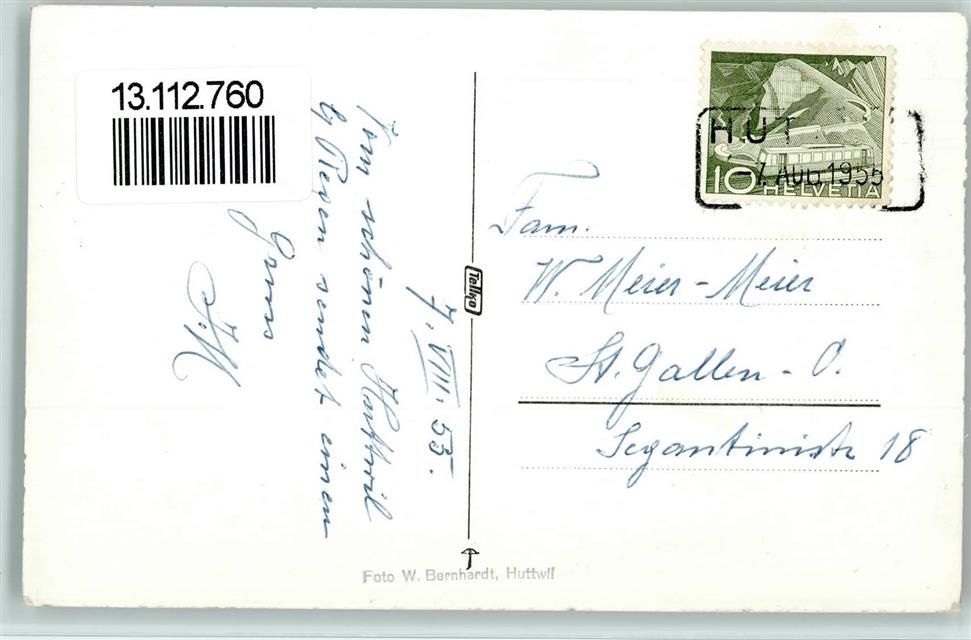 13.112.760
7. VIII. 55.
Vom schönen Huttwil
b/ Riesen sendet einen
Gruss
J.M
Tellko
Foto W. Bernhardt, Huttwil
HUT
-7. AUG. 1955
10 HELVETIA
Fam.
W. Meier-Meier
St. Gallen-O.
Segantinistr 18